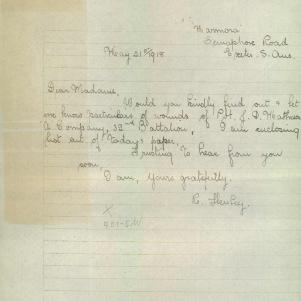 "Marmora"
Semaphore Road
Exeter. S. Aus.
May 21st 1918.
Dear Madame,
Would you kindly find out & let
me know particulars of wounds of Pte. J. D.
A Company, 32nd Battalion, I am enclosing
list out of todays paper.
Trusting to hear from you
soon,
I am, Yours gratefully,